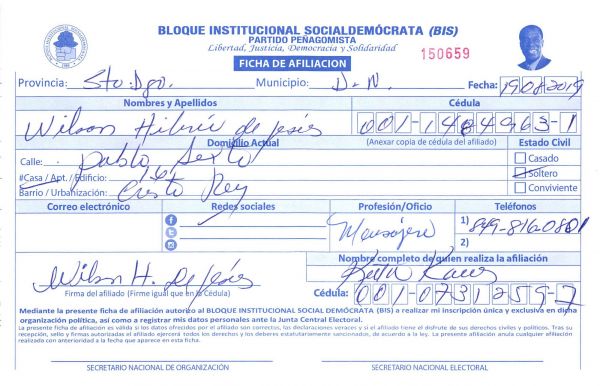 BLOQUE INSTITUCIONAL SOCIALDEMÓCRATA (BIS)
PARTIDO PEÑAGOMISTA
Libertad, Justicia, Democracia y Solidaridad
150659
FICHA DE AFILIACION
Provincia: Sto. Dgo. Municipio: D.N. Fecha: 19/01/2019
Nombres y Apellidos Cédula
Wilson de Jesús 001-1484963-1
Domicilio Actual (Anexar copia de cédula del afiliado) Estado Civil
Calle: Pablo Sexto Casado
#Casa / Apt. / Edificio: 161 Soltero
Barrio / Urbanización: Cristo Rey Conviviente
Correo electrónico Redes sociales Profesión/Oficio Teléfonos
Mensajero 1) 849-816-0801
2)
Nombre completo de quien realiza la afiliación
Wilson H. de Jesús
Firma del afiliado (Firme igual que en la Cédula) Cédula: 001-0731259-7
Mediante la presente ficha de afiliación autorizo al BLOQUE INSTITUCIONAL SOCIAL DEMÓCRATA (BIS) a realizar mi inscripción única y exclusiva en dicha
organización política, así como a registrar mis datos personales ante la Junta Central Electoral.
La presente ficha de afiliación es válida si los datos ofrecidos por el afiliado son correctos, las declaraciones veraces y si el afiliado tiene el disfrute de sus derechos civiles y políticos. Tras su
recepción, sello y firmas autorizadas el afiliado ejercerá todos los derechos y los deberes estatutariamente sancionados, de acuerdo a la ley. La presente afiliación anula cualquier afiliación
realizada con anterioridad a la fecha que aparece en esta ficha.
SECRETARIO NACIONAL DE ORGANIZACIÓN SECRETARIO NACIONAL ELECTORAL